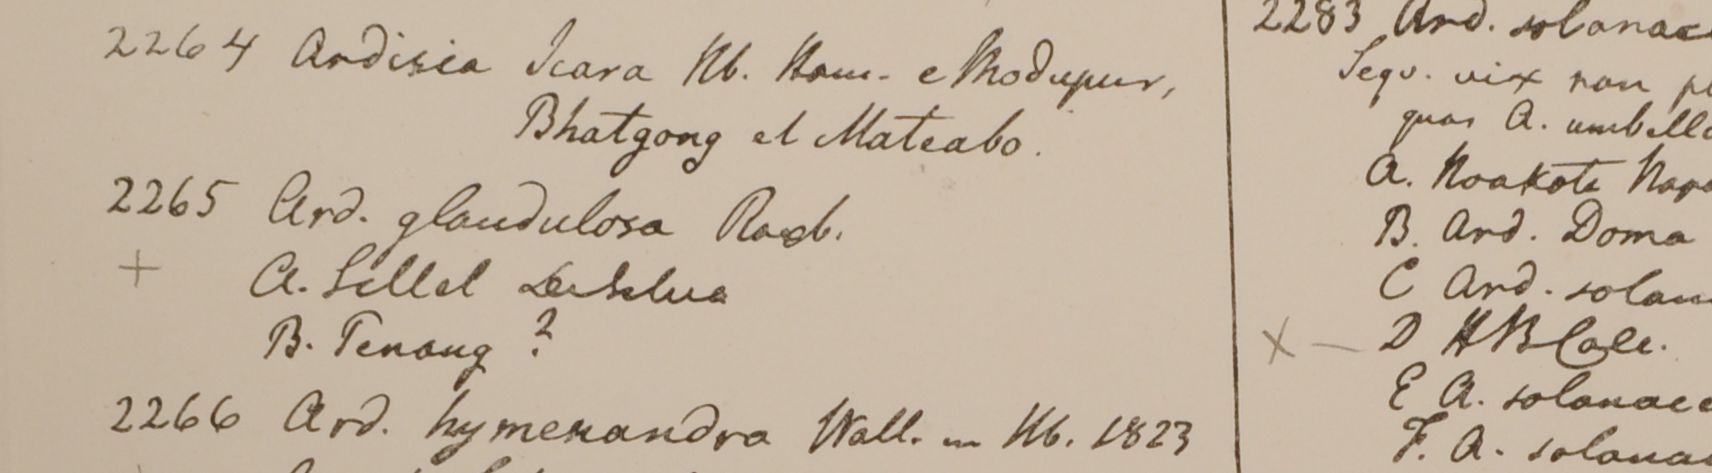 2264 Ardisia Icara Hb. Ham. e Modupur,
Bhatgong et Mateabo.
2265 Ard. glandulosa Roxb.
+ A. Sillet
B. Penang ?
2266 Ard. hymenandra Wall. in Hb. 1823
2283 Ard. solanac
Seqv. vix non
quas A. umbella
A. Noakote
B. Ard. Doma
C Ard. solan
X — D HBCalc.
E A. solanace
F. A. solana